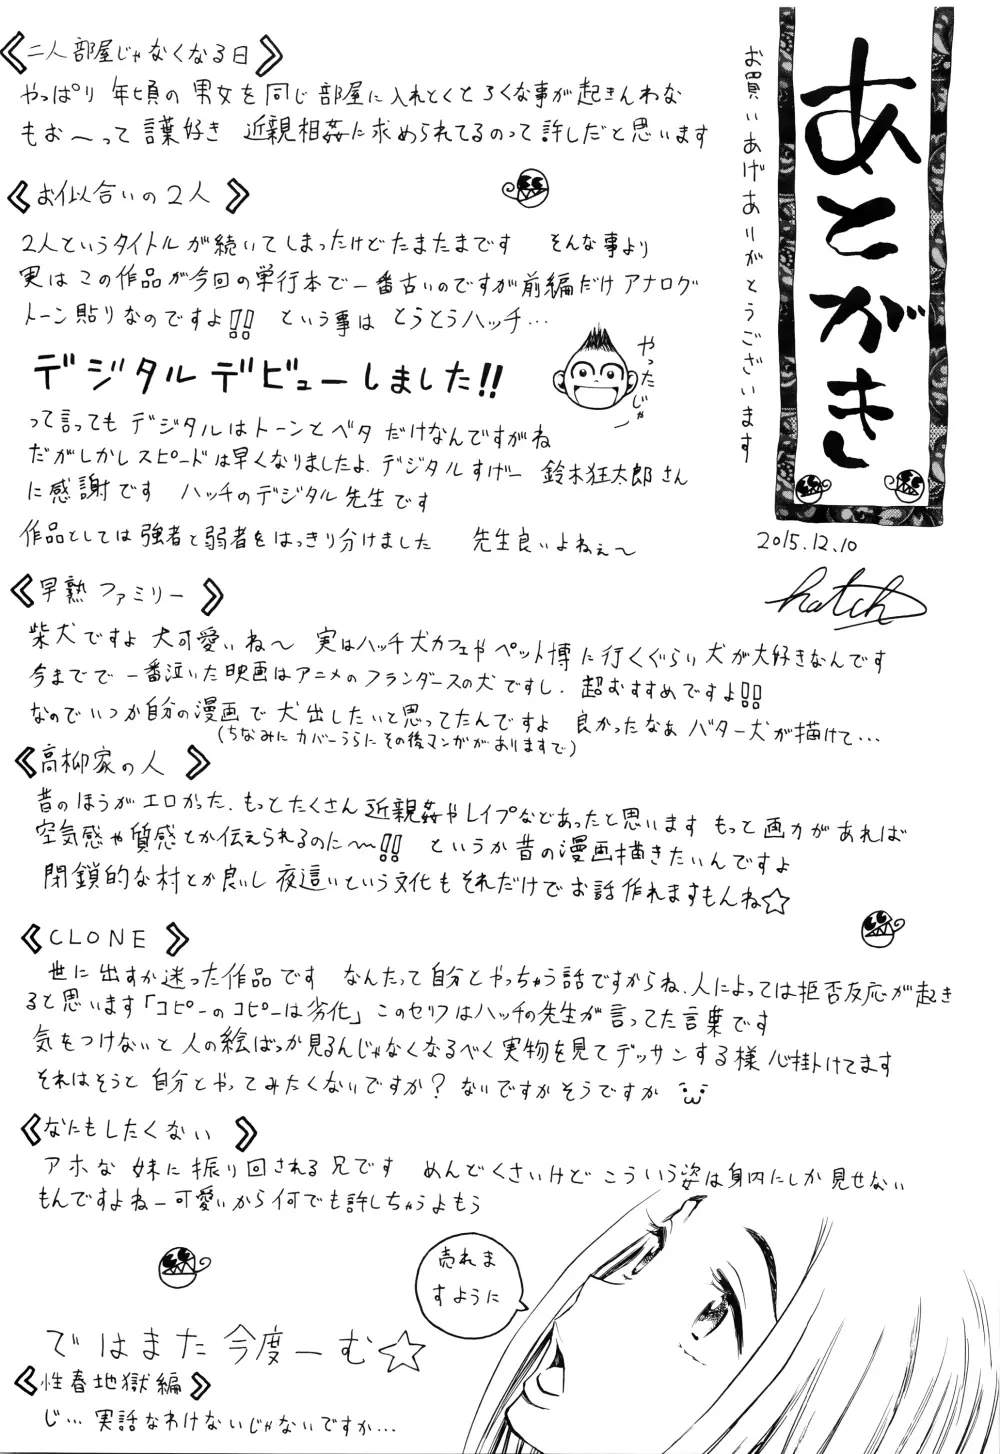 あとがき
お買いあげありがとうございます
2015.12.10
hatch
《二人部屋じゃなくなる日》
やっぱり 年頃の 男女を同じ部屋に入れとくとろくな事が起きんわな
もお〜って言葉好き 近親相姦に求められてるのって許しだと思います
《お似合いの2人》
2人というタイトルが続いてしまったけどたまたまです そんな事より
実はこの作品が今回の単行本で一番古いのですが前編だけアナログ
トーン貼りなのですよ!! という事は とうとうハッチ…
デジタルデビューしました!!
やったじゃー
って言っても デジタルはトーンとベタ だけなんですがね
だがしかしスピードは早くなりましたよ.デジタルすげー 鈴木狂太郎さん
に感謝です ハッチのデジタル先生です
作品としては強者と弱者をはっきり分けました 先生良いよねぇ〜
《早熟ファミリー》
柴犬ですよ 犬可愛いね〜 実はハッチ犬カフェやペット博に行くぐらい犬が大好きなんです
今までで一番泣いた映画はアニメのフランダースの犬ですし.超おすすめですよ!!
なのでいつか自分の漫画で犬出したいと思ってたんですよ 良かったなぁ バター犬が描けて…
(ちなみにカバーうらにその後マンガがありますで)
《高柳家の人》
昔のほうがエロかった.もっとたくさん近親姦やレイプなどあったと思います もっと画力があれば
空気感や質感とか伝えられるのに〜!! というか昔の漫画描きたいんですよ
閉鎖的な村とか良いし夜這いという文化もそれだけでお話作れますもんね☆
《CLONE》
世に出すか迷った作品です なんたって自分とやっちゃう話ですからね.人によっては拒否反応が起き
ると思います「コピーのコピーは劣化」このセリフはハッチの先生が言ってた言葉です
気をつけないと人の絵ばっか見るんじゃなくなるべく実物を見てデッサンする様心掛けてます
それはそうと自分とやってみたくないですか?ないですかそうですか
《なにもしたくない》
アホな妹に振り回される兄です めんどくさいけどこういう姿は身内にしか見せない
もんですよねー可愛いから何でも許しちゃうよもう
売れま
すように
ではまた今度ーむ☆
《性春地獄編》
じ…実話なわけないじゃないですか…